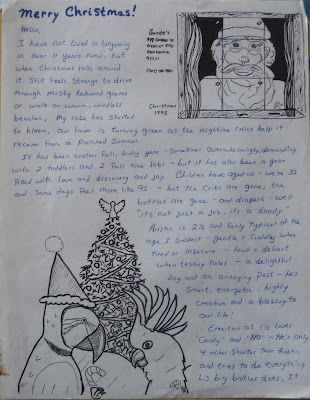 Merry Christmas!
Hello,
I have not lived in Wyoming
in over 11 years now, but
when Christmas rolls around
it still feels strange to drive
through misty Redwood groves
or walk on warm, windless
beaches. My rose has started
to bloom, our lawn is turning green as the nightime rains help it
recover from a parched summer.
It has been another full, busy year - sometimes overwhelmingly demanding
with 2 toddlers and 2 full time jobs - but it has also been a year
filled with love and discovery and joy. Children have aged us - we're 32
and some days feel more like 92 - but the cribs are gone, the
bottles are gone - and diapers - well
"it's not just a job, it's a doody"
Austin is 2½ and fairly typical of the
age I suspect - gentle & cuddly when
tired or insecure - loud & defiant
when testing rules - a delightful
joy and an annoying pest - he's
smart, energetic, highly
creative and a blessing to
our life!
at 1½ loves
"Candy" and "NO" - He's only
4 inches shorter than Austin
and tries to do everything
his big brother does. It
Crescent City
California
95531
Christmas
1995